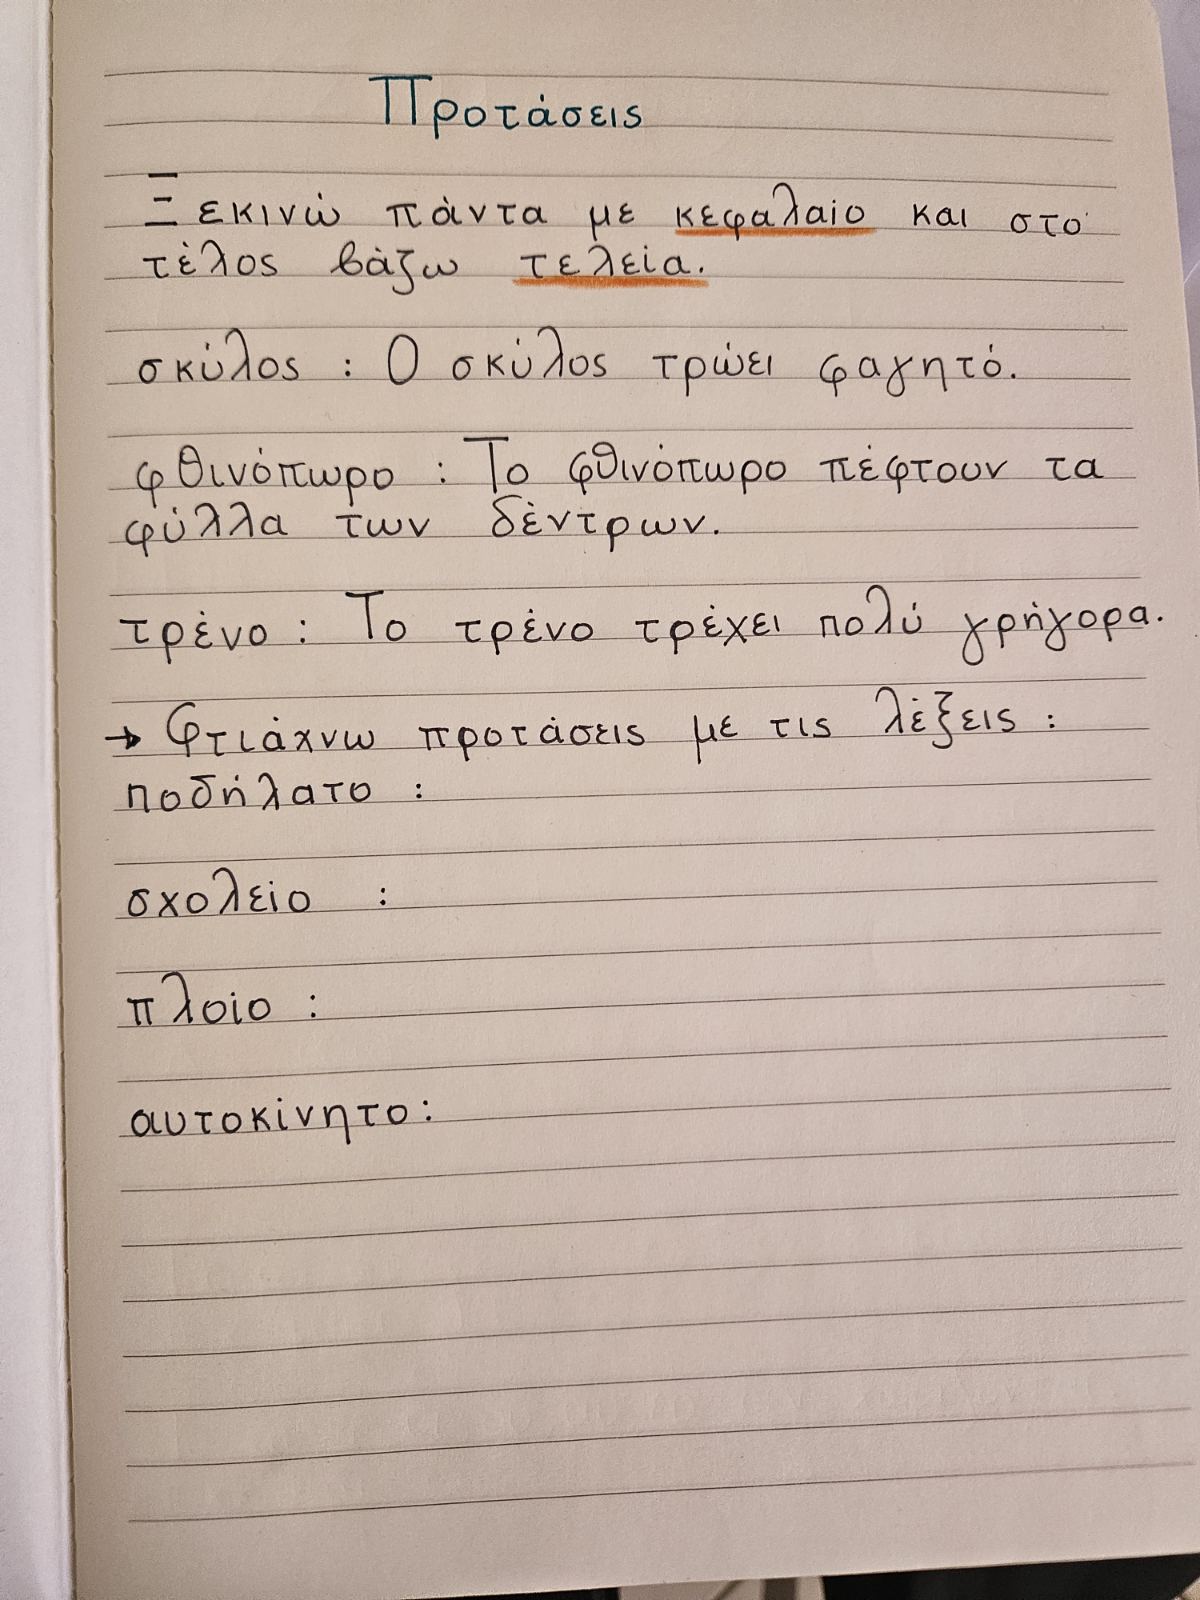 Προτάσεις
Ξεκινώ πάντα με κεφαλαίο και στο
τέλος βάζω τελεία.
σκύλος : Ο σκύλος τρώει φαγητό.
φθινόπωρο : Το φθινόπωρο πέφτουν τα
φύλλα των δέντρων.
τρένο : Το τρένο τρέχει πολύ γρήγορα.
→ Φτιάχνω προτάσεις με τις λέξεις :
ποδήλατο :
σχολείο :
πλοίο :
αυτοκίνητο :